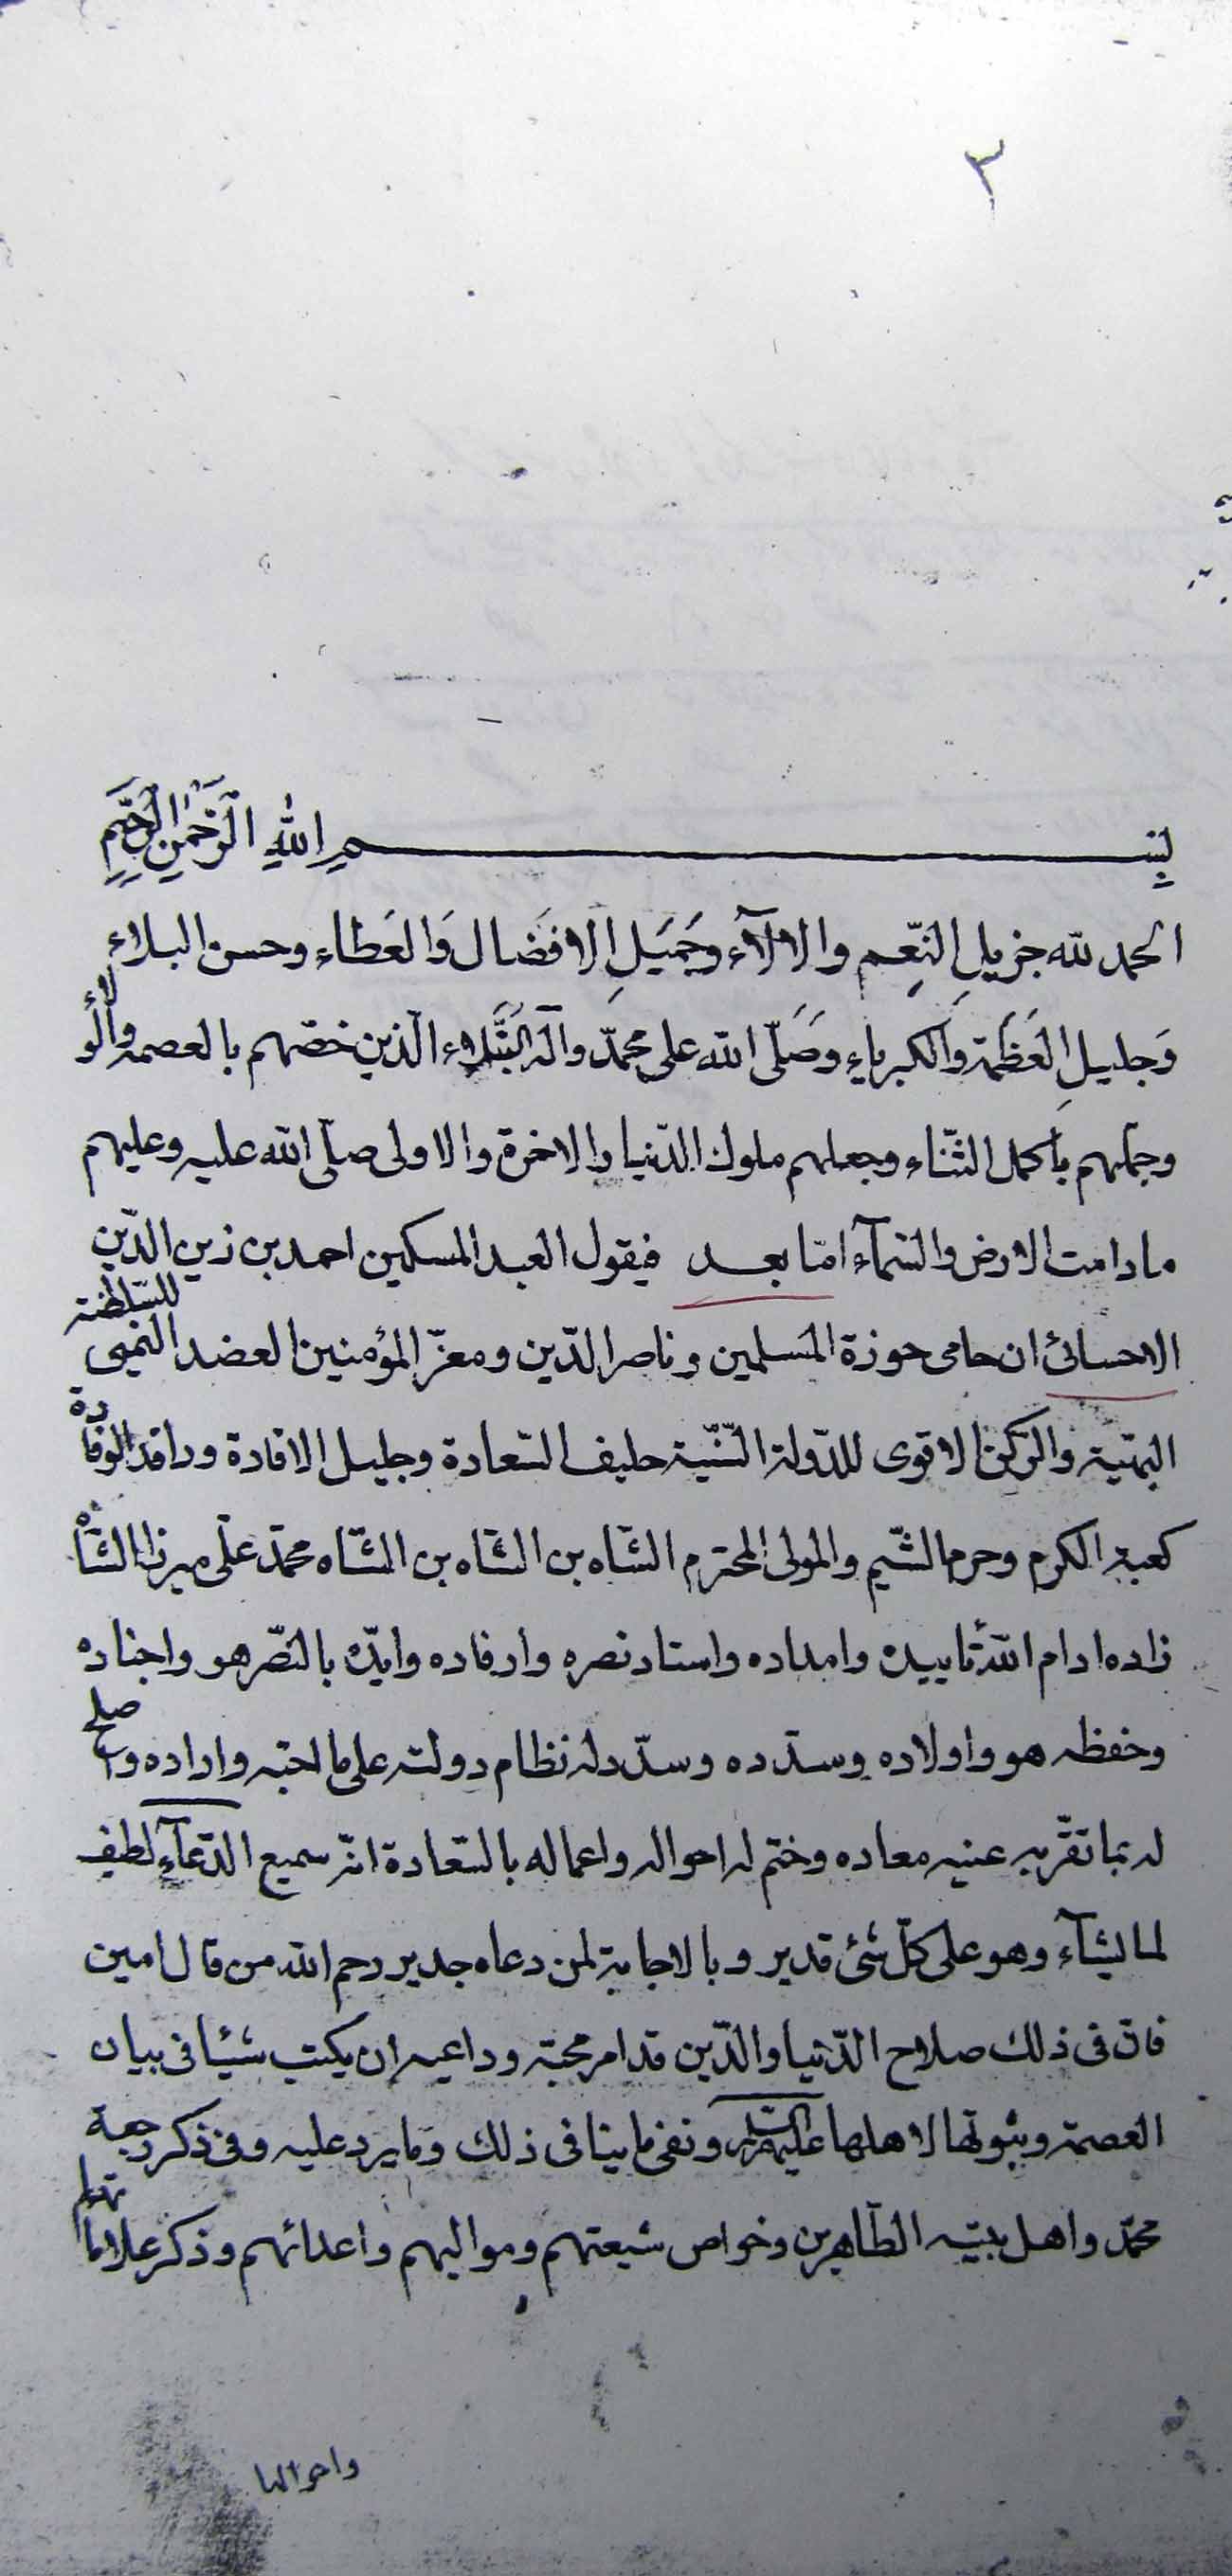 ٢
بِسْمِ اللهِ الرَّحْمٰنِ الرَّحِيمِ
الحمد لله جزيلِ النِّعَم والالآء وَجَمَيَلِ الافضَال وَالعَطاء وحسن البلاء
وَجليلِ العَظَمَة والكبرياءِ وَصَلّى الله على محمّد وآله النُّبَلاء الّذين خصّهم بالعصمة والولاء
وجمّلهم بأكمل الثّناء وجعلهم ملوك الدّنيا والاخرة والاولى صلّى الله عليه وعليهم
ما دامت الارض والسّمآء امّا بعد فيقول العبد المسكين احمد بن زين الدّين
الاحسائئ ان حامى حوزة المسلمين وناصر الدّين ومعزّ المؤمنين العضد اليمنى للسّلطنة
البهيّة والرّكن الاقوى للدّولة السّنيّة حليف السّعادة وجليل الافادة ورافد الوفادة
كعبة الكرم وحرم الشّيم والمولى المحترم الشّاه بن الشّاه بن الشّاه محمّد على ميرزا الشّاه
زاده ادام الله تأييده وامداده واسناد نصره وارفاده وايّده بالنّصر هو واجناده
وحفظه هو واولاده وسدّده وسدّد له نظام دولته على ما احبّه واراده واصلح
له بما تقّر به عينيه معاده وختم له احواله واعماله بالسّعادة انّه سميع الدّعآء لطيف
لما يشآء وهو على كلّ شئ قدير وبالاجابة لمن دعاه جدير رحم الله من قال امين
فان فى ذلك صلاح الدّنيا والدّين قد امر محبّه وداعيه ان يكتب شيئا فى بيان
العصمة وثبوتها لاهلها عليهم السّلام ونفى ما ينافى ذلك وما يرد عليه وفى ذكر رجعة
محمّد واهل بيته الطّاهرين وخواص شيعتهم ومواليهم واعدائهم وذكر علاماتها
واحوالها